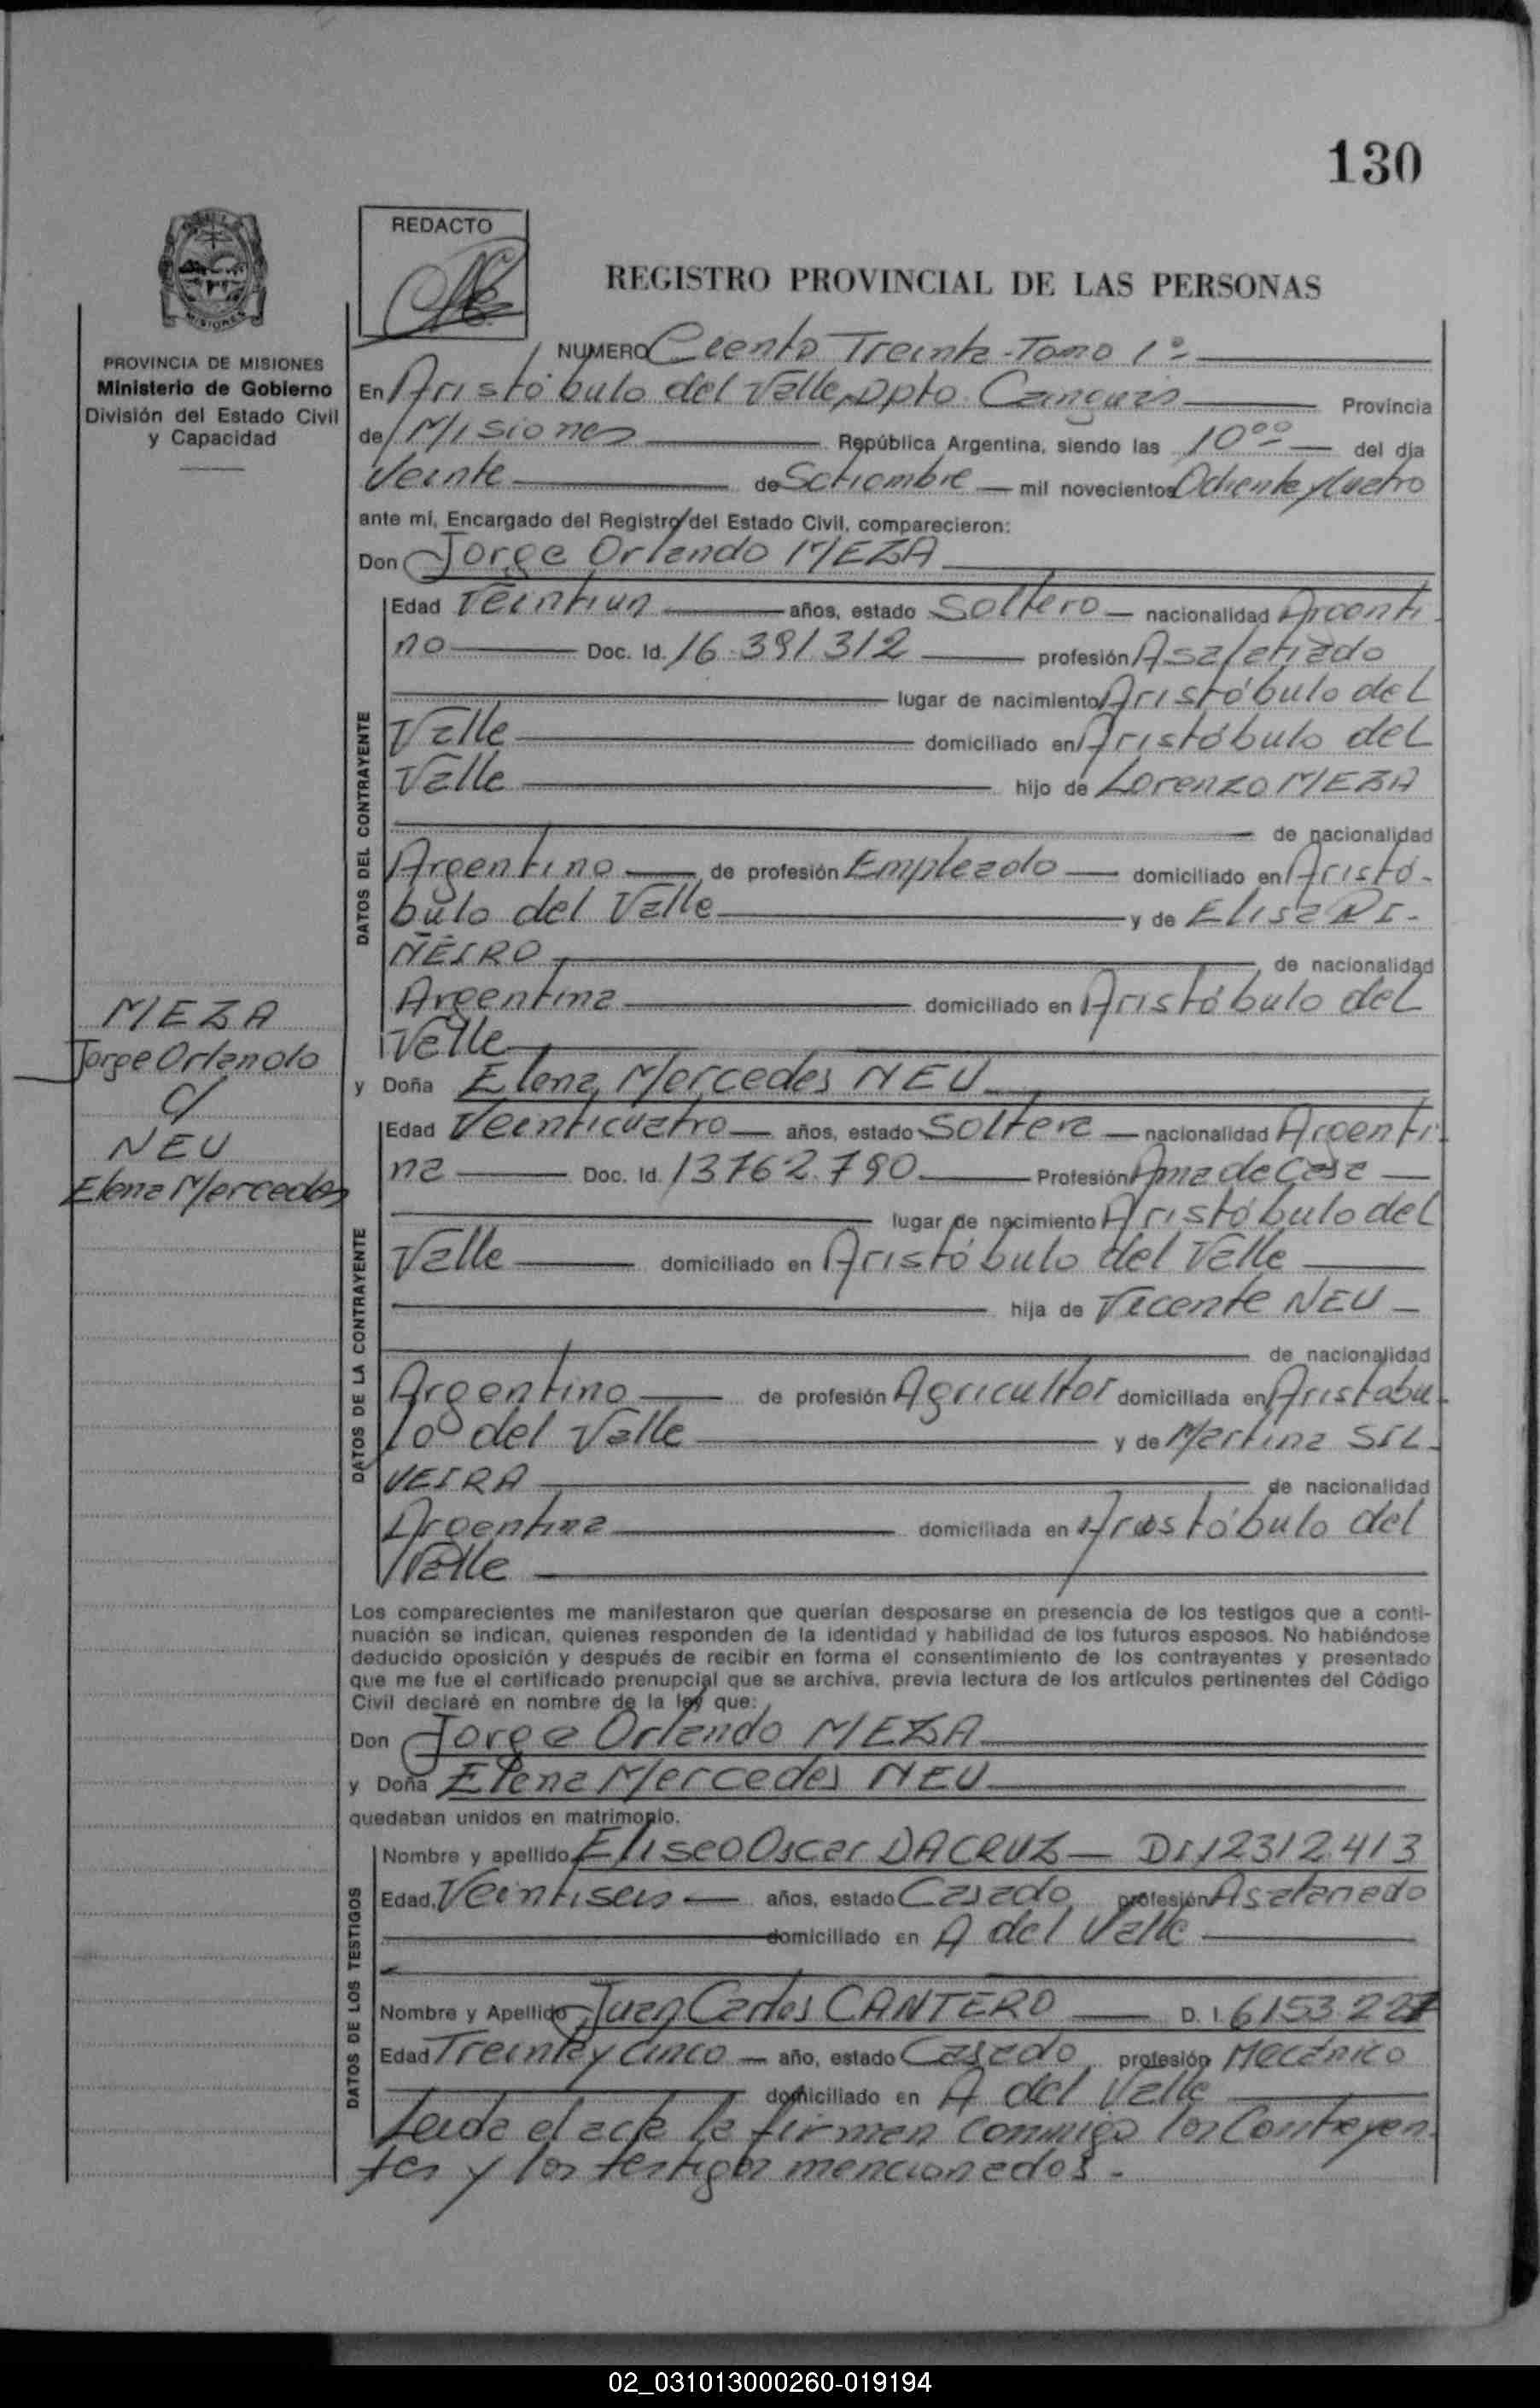 130
REDACTO
REGISTRO PROVINCIAL DE LAS PERSONAS
MISIONES
PROVINCIA DE MISIONES
Ministerio de Gobierno
División del Estado Civil
y Capacidad
NUMERO Ciento Treinta - Tomo 1º
En Aristóbulo del Valle, Dpto. Cainguás Provincia
de Misiones República Argentina, siendo las 10ºº del día
Veinte de Setiembre mil novecientos Ochenta y Cuatro
ante mí, Encargado del Registro del Estado Civil, comparecieron:
Don Jorge Orlando MEZA
DATOS DEL CONTRAYENTE
Edad Veintiun años, estado Soltero nacionalidad Argenti
no Doc. Id. 16.391.312 profesión Asalariado
lugar de nacimiento Aristóbulo del
Valle domiciliado en Aristóbulo del
Valle hijo de Lorenzo MEZA
de nacionalidad
Argentino de profesión Empleado domiciliado en Aristó-
bulo del Valle y de Elisa PI-
ÑEIRO de nacionalidad
Argentina domiciliado en Aristóbulo del
Valle
MEZA
Jorge Orlando
c/
NEU
Elena Mercedes
y Doña Elena Mercedes NEU
DATOS DE LA CONTRAYENTE
Edad Veinticuatro años, estado Soltera nacionalidad Argenti-
na Doc. Id. 13.762.790 Profesión Ama de Casa
lugar de nacimiento Aristóbulo del
Valle domiciliado en Aristóbulo del Valle
hija de Vicente NEU
de nacionalidad
Argentino de profesión Agricultor domiciliada en Aristobu-
lo del Valle y de Martina SIL-
VEIRA de nacionalidad
Argentina domiciliada en Aristóbulo del
Valle
Los comparecientes me manifestaron que querían desposarse en presencia de los testigos que a conti-
nuación se indican, quienes responden de la identidad y habilidad de los futuros esposos. No habiéndose
deducido oposición y después de recibir en forma el consentimiento de los contrayentes y presentado
que me fue el certificado prenupcial que se archiva, previa lectura de los artículos pertinentes del Código
Civil declaré en nombre de la ley que:
Don Jorge Orlando MEZA
y Doña Elena Mercedes NEU
quedaban unidos en matrimonio.
DATOS DE LOS TESTIGOS
Nombre y apellido Eliseo Oscar DACRUZ DI 12312.413
Edad, Veintiseis años, estado Casado profesión Asalariado
domiciliado en A del Valle
Nombre y Apellido Juan Carlos CANTERO D. I. 6153.227
Edad Treinta y Cinco año, estado Casado profesión Mecánico
domiciliado en A del Valle
Leida el acta la firman conmigo los Contrayen-
tes y los testigos mencionados.-
02_031013000260-019194